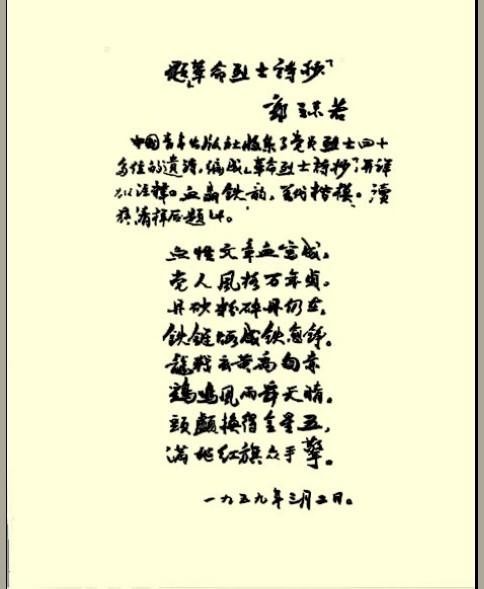 题「革命烈士诗抄」
郭沫若
中国青年出版社收集了党员烈士四十
多位的遗诗，编成「革命烈士诗抄」，并详
加注释。血席铁韵，万代楷模。读
旗清样后题此。
血性文章血写成，
党人风格万年贞。
丹砂粉碎丹仍在，
铁链烧成铁愈铮。
龙战玄黄高旬赤
鸡鸣风雨舞天晴。
头颅换得金星五，
满地红旗众手擎。
一九五九年三月三日。